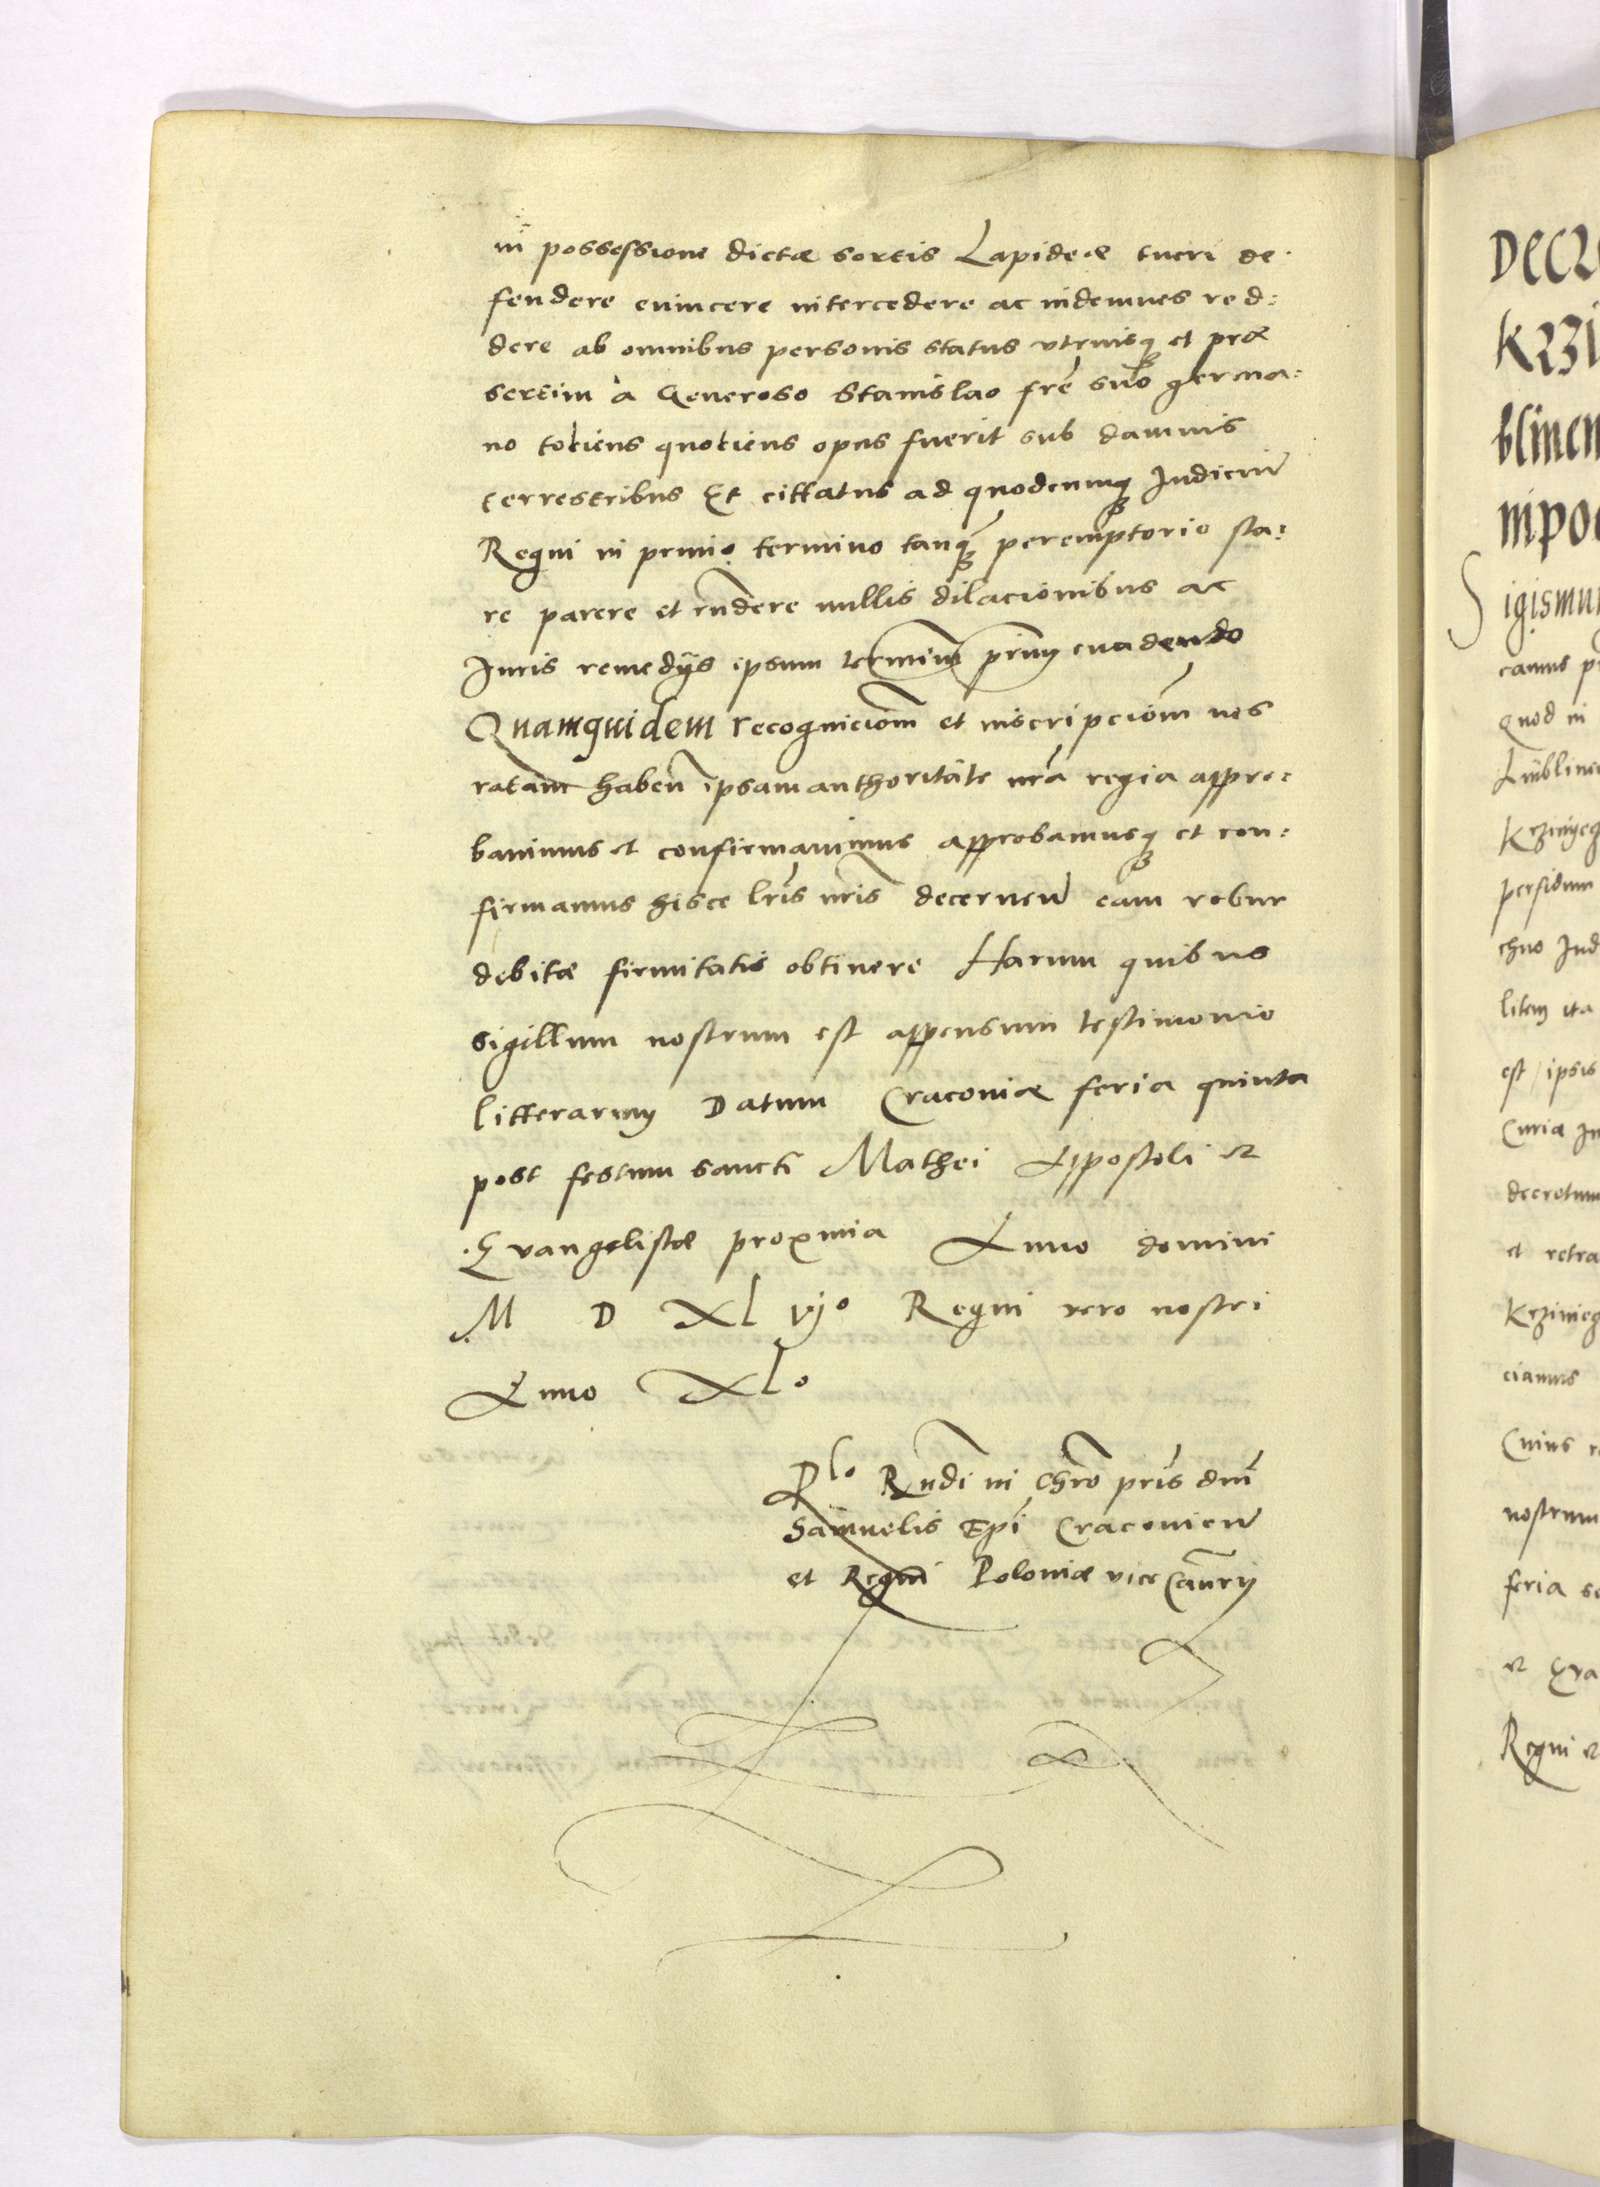 in possessione dictæ sortis Lapideæ tueri de-
fendere euincere intercedere ac indemnes red:
dere ab omnibus personis status vtriusq et præ
sertim à Generoso Stanislao fre suo germa:
no totiens quotiens opus fuerit sub damnis
terrestribus Et cittatus ad quodcunq Iudiciu
Regni in primo termino tanq peremptorio sta:
re parere et rndere nullis dilacionibus ac
Iuris remedijs ipsum terminu primu euadendo
Quamquidem recognicionm et inscripcionm nos
ratam haben ipsam authoritate nra regia appro:
bauimus et confirmauimus approbamusq et con:
firmamus hisce lris nris decernen eam robur
debitæ firmitatis obtinere Harum quibus
sigillum nostrum est appensum testimonio
litterarum Datum Cracouiæ feria quinta
post festum sancti Mathei Appostoli et
Euangelistæ proxima Anno domini
M D XL vjo Regni vero nostri
Anno XLo
Rlo Rndi in Chro pris dni
Samuelis Epi Cracouien
et Regni Poloniæ vice Cancrij
DECRE
KRZI
blinen
inpo
Sigismun
camus
Quod in
Lublinen
persidum
chno Iud
litem ita
est ipsis
Curiæ In
decretum
et retra
ciamus
Cuius
nostrum
feria se
et Era
Regni et